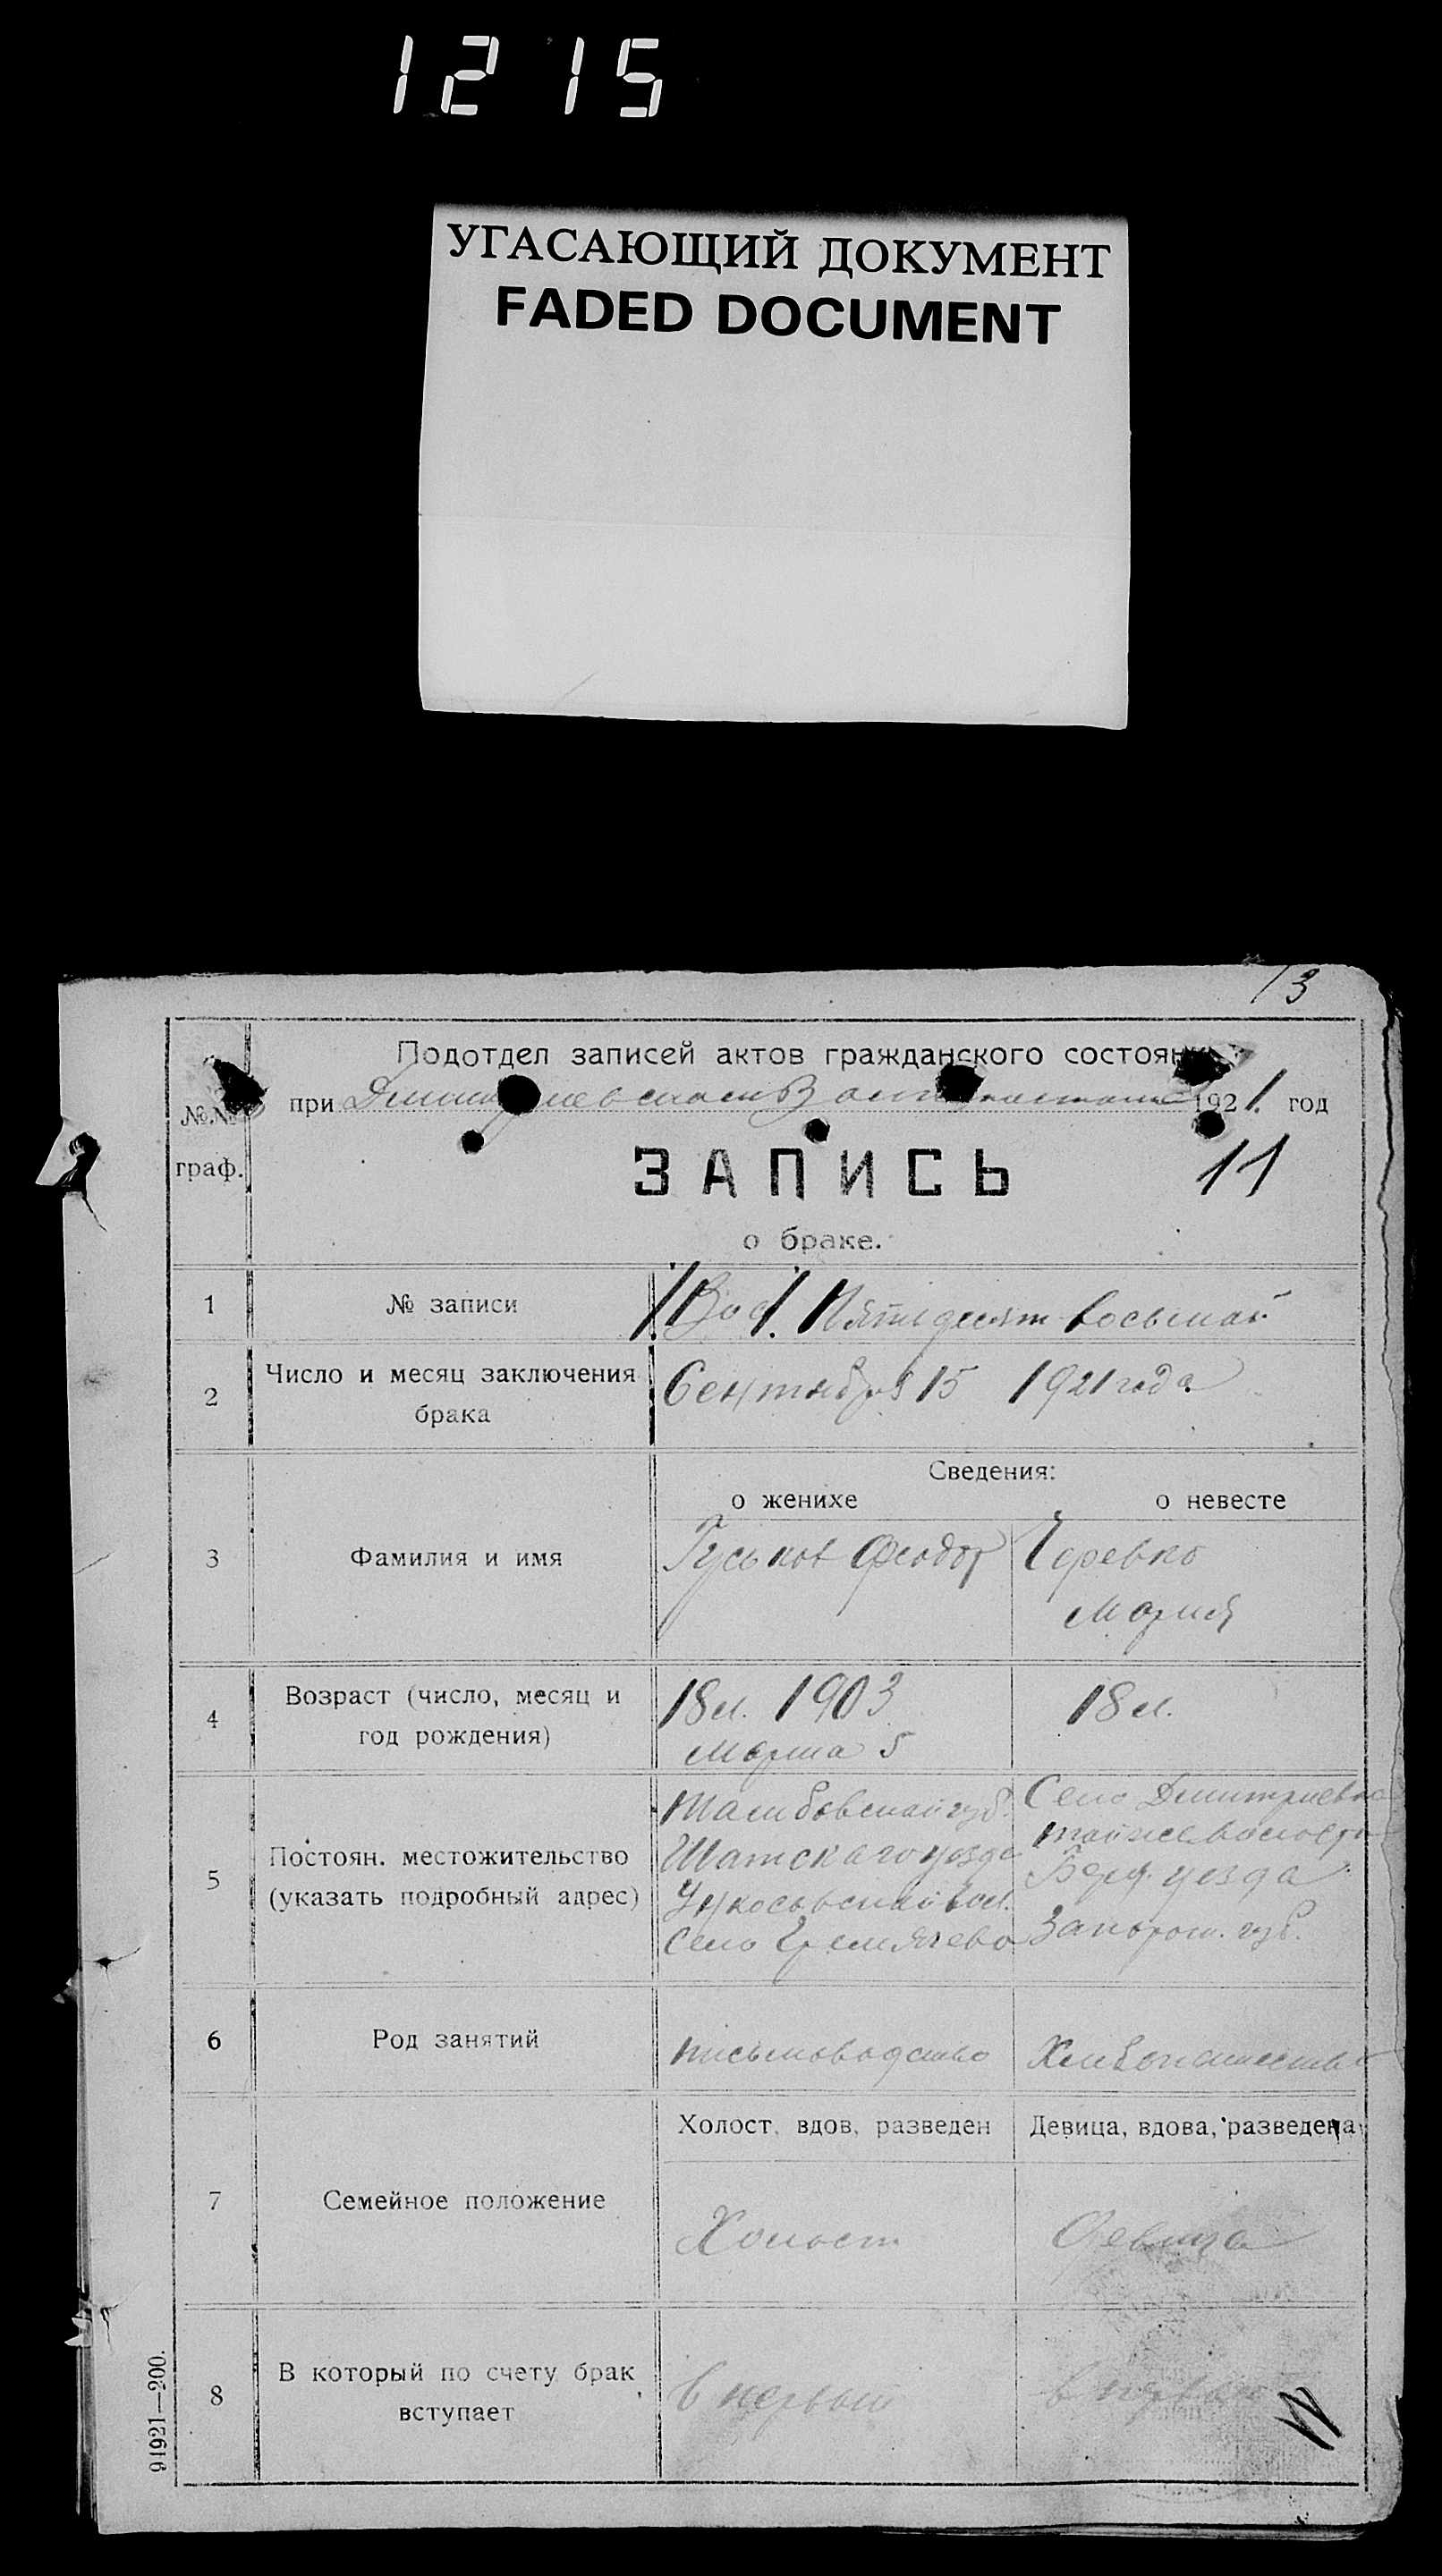 1215
УГАСАЮЩИЙ ДОКУМЕНТ
FADED DOCUMENT
13
№№ граф.
Подотдел записей актов гражданского состоян
при 1921. год
ЗАПИСЬ
11
о браке.
1 № записи Пятидесят восьмой
2 Число и месяц заключения брака Сентября 15 1921 года
Сведения:
о женихе о невесте
3 Фамилия и имя Гуськов Феодор Черевко
Мария
4 Возраст (число, месяц и год рождения) 18 л. 1903 18 л.
Марта 5
5 Постоян. местожительство (указать подробный адрес)
Тамбовской губ.
Шатскаго уезда
село
Село Дмитриевка
тойже волости
Берд. уезда
Запорож. губ.
6 Род занятий письмоводство Хлебопашество
Холост, вдов, разведен Девица, вдова, разведена
7 Семейное положение Холост Девица
8 В который по счету брак вступает в первый в первый
91921—200.